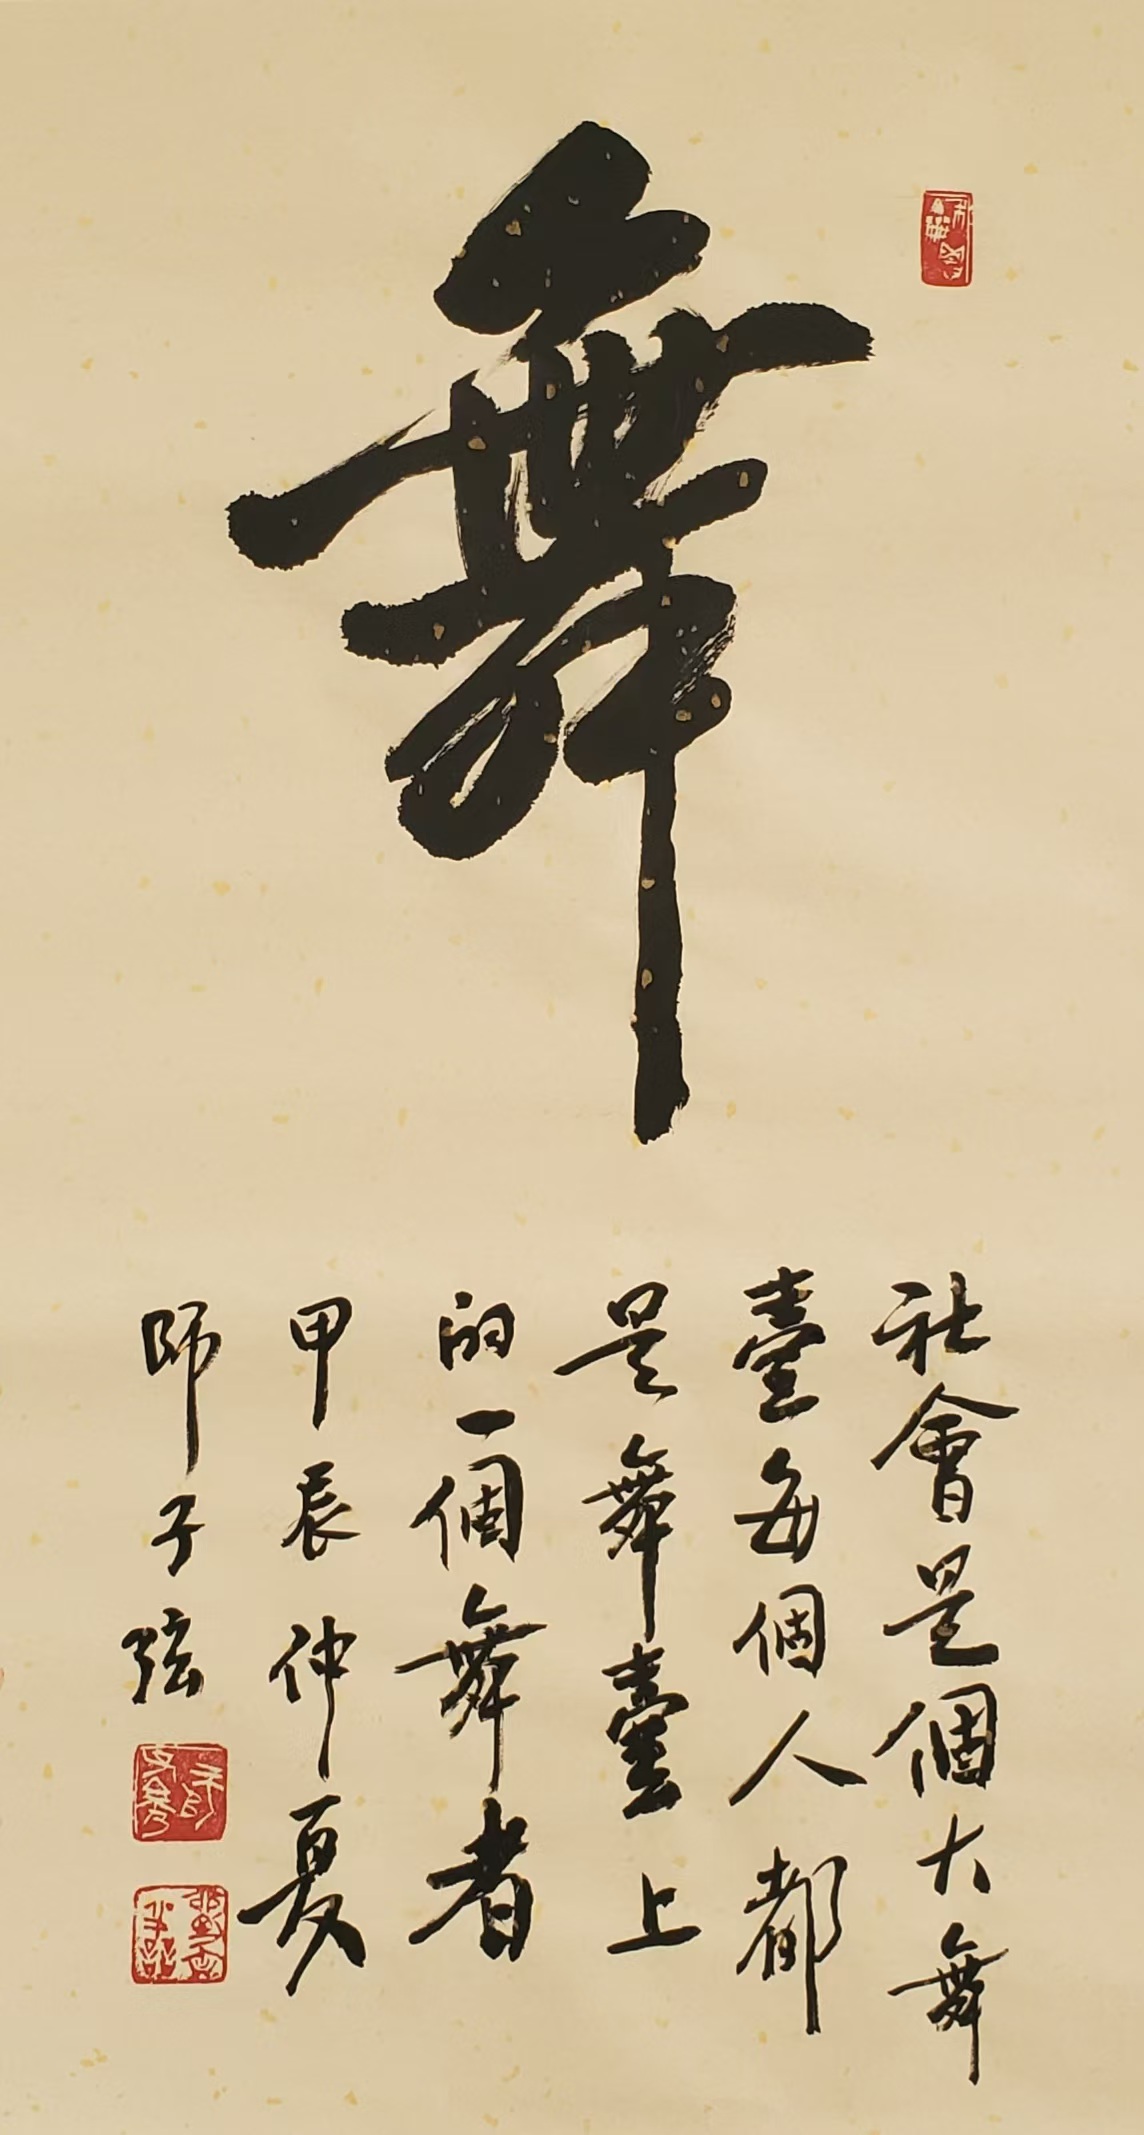 舞
社會是個大舞
臺每個人都
是舞臺上
的一個舞者
甲辰仲夏
師子弦